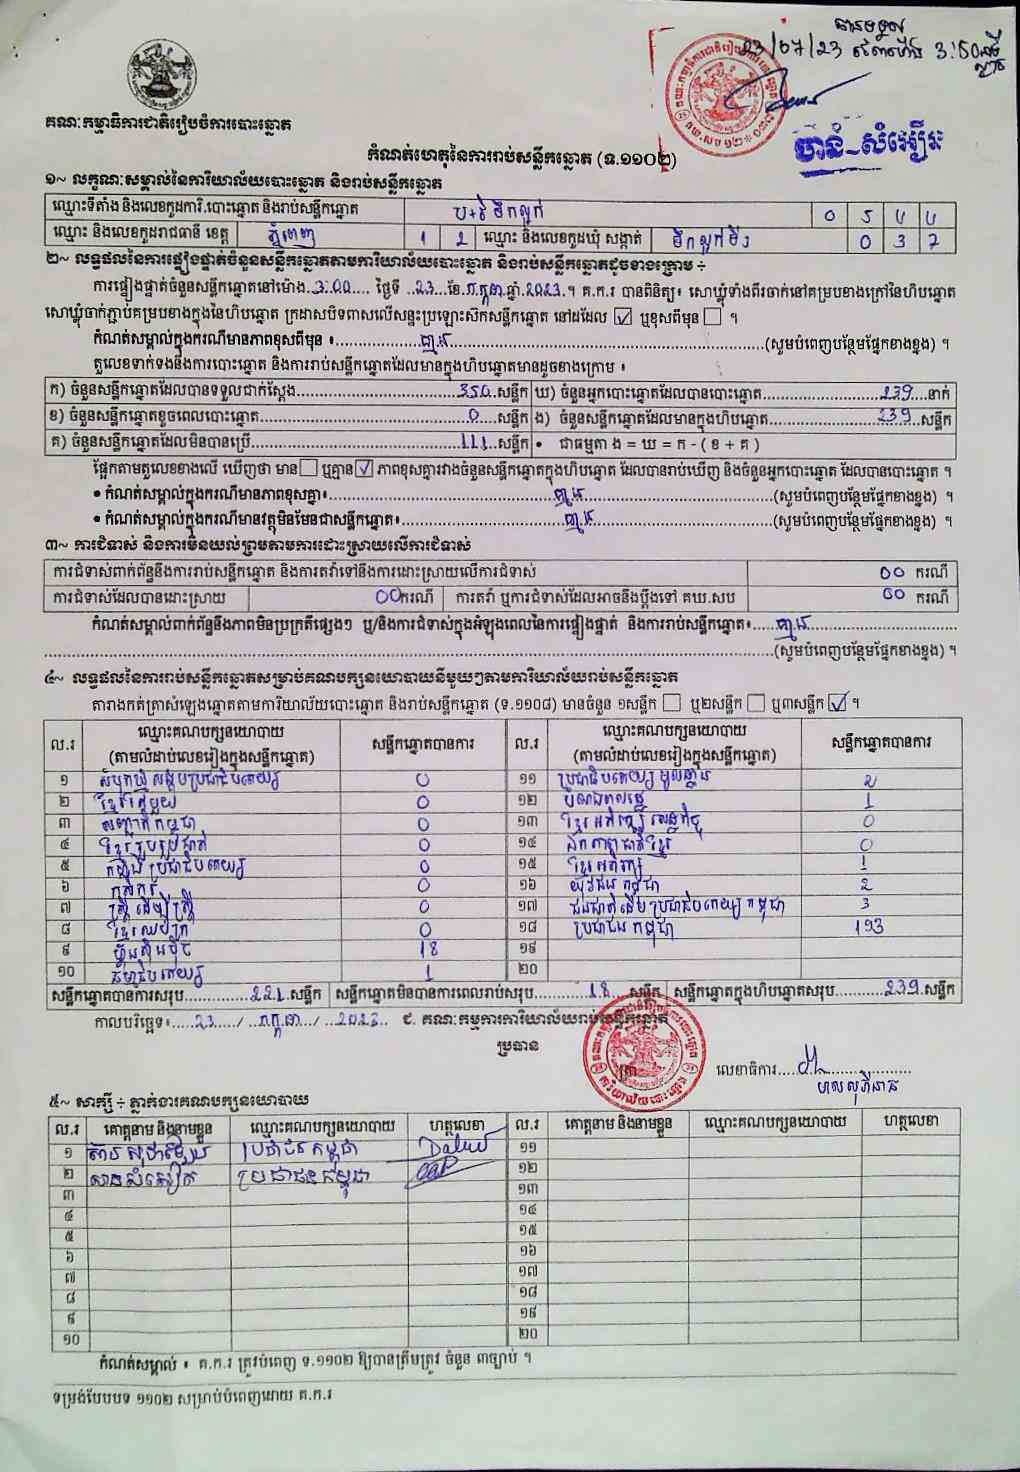 បានទទួល
23/07/23 វេលាម៉ោង 3:50 នាទី
ល្ងាច
គណៈកម្មាធិការជាតិរៀបចំការបោះឆ្នោត
ចាន់ សំអឿន
កំណត់ហេតុនៃការរាប់សន្លឹកឆ្នោត (ទ.១១០២)
១~ លក្ខណៈសម្គាល់នៃការិយាល័យបោះឆ្នោត និងរាប់សន្លឹកឆ្នោត
ឈ្មោះទីតាំង និងលេខកូដការិ.បោះឆ្នោត និងរាប់សន្លឹកឆ្នោត 0 5 4 4
ឈ្មោះ និងលេខកូដរាជធានី ខេត្ត ភ្នំពេញ 1 2 ឈ្មោះ និងលេខកូដឃុំ សង្កាត់ ទឹកល្អក់ទី១ 0 3 7
២~ លទ្ធផលនៃការផ្ទៀងផ្ទាត់ចំនួនសន្លឹកឆ្នោតតាមការិយាល័យបោះឆ្នោត និងរាប់សន្លឹកឆ្នោតដូចខាងក្រោម ÷
ការផ្ទៀងផ្ទាត់ចំនួនសន្លឹកឆ្នោតនៅម៉ោង..3:00..... ថ្ងៃទី ..23...ខែ.កក្កដា.ឆ្នាំ.2023.។ គ.ក.រ បានពិនិត្យ៖ សោឃ្លុំទាំងពីរចាក់នៅគម្របខាងក្រៅនៃហិបឆ្នោត
សោឃ្លុំចាក់ភ្ជាប់គម្របខាងក្នុងនៃហិបឆ្នោត ក្រដាសបិទពាសលើសន្ទះប្រឡោះសឹកសន្លឹកឆ្នោត នៅដដែល ☑ ឬខុសពីមុន ☐ ។
កំណត់សម្គាល់ក្នុងករណីមានភាពខុសពីមុន ៖ គ្មាន (សូមបំពេញបន្ថែមផ្នែកខាងខ្នង) ។
តួលេខទាក់ទងនឹងការបោះឆ្នោត និងការរាប់សន្លឹកឆ្នោតដែលមានក្នុងហិបឆ្នោតមានដូចខាងក្រោម ៖
ក) ចំនួនសន្លឹកឆ្នោតដែលបានទទួលជាក់ស្តែង 350 សន្លឹក ឃ) ចំនួនអ្នកបោះឆ្នោតដែលបានបោះឆ្នោត 239 នាក់
ខ) ចំនួនសន្លឹកឆ្នោតខូចពេលបោះឆ្នោត 0 សន្លឹក ង) ចំនួនសន្លឹកឆ្នោតដែលមានក្នុងហិបឆ្នោត 239 សន្លឹក
គ) ចំនួនសន្លឹកឆ្នោតដែលមិនបានប្រើ 111 សន្លឹក • ជាធម្មតា ង = ឃ = ក - ( ខ + គ )
ផ្អែកតាមតួលេខខាងលើ ឃើញថា មាន ☐ ឬគ្មាន ☑ ភាពខុសគ្នារវាងចំនួនសន្លឹកឆ្នោតក្នុងហិបឆ្នោត ដែលបានរាប់ឃើញ និងចំនួនអ្នកបោះឆ្នោត ដែលបានបោះឆ្នោត ។
• កំណត់សម្គាល់ក្នុងករណីមានភាពខុសគ្នា៖ គ្មាន (សូមបំពេញបន្ថែមផ្នែកខាងខ្នង) ។
• កំណត់សម្គាល់ក្នុងករណីមានវត្ថុមិនមែនជាសន្លឹកឆ្នោត៖ គ្មាន (សូមបំពេញបន្ថែមផ្នែកខាងខ្នង) ។
៣~ ការជំទាស់ និងការមិនយល់ព្រមតាមការដោះស្រាយលើការជំទាស់
ការជំទាស់ពាក់ព័ន្ធនឹងការរាប់សន្លឹកឆ្នោត និងការតវ៉ាទៅនឹងការដោះស្រាយលើការជំទាស់ 00 ករណី
ការជំទាស់ដែលបានដោះស្រាយ 00 ករណី ការតវ៉ា ឬការជំទាស់ដែលអាចនឹងប្តឹងទៅ គឃ.សប 00 ករណី
កំណត់សម្គាល់ពាក់ព័ន្ធនឹងភាពមិនប្រក្រតីផ្សេងៗ ឬ/និងការជំទាស់ក្នុងអំឡុងពេលនៃការផ្ទៀងផ្ទាត់ និងការរាប់សន្លឹកឆ្នោត៖ គ្មាន
(សូមបំពេញបន្ថែមផ្នែកខាងខ្នង) ។
៤~ លទ្ធផលនៃការរាប់សន្លឹកឆ្នោតសម្រាប់គណបក្សនយោបាយនីមួយៗតាមការិយាល័យរាប់សន្លឹកឆ្នោត
តារាងកត់ត្រាសំឡេងឆ្នោតតាមការិយាល័យបោះឆ្នោត និងរាប់សន្លឹកឆ្នោត (ទ.១១០៨) មានចំនួន ១សន្លឹក ☐ ឬ២សន្លឹក ☐ ឬ៣សន្លឹក ☑ ។
ល.រ ឈ្មោះគណបក្សនយោបាយ (តាមលំដាប់លេខរៀងក្នុងសន្លឹកឆ្នោត) សន្លឹកឆ្នោតបានការ ល.រ ឈ្មោះគណបក្សនយោបាយ (តាមលំដាប់លេខរៀងក្នុងសន្លឹកឆ្នោត) សន្លឹកឆ្នោតបានការ
១ សំបុកឃ្មុំសង្គមប្រជាធិបតេយ្យ 0 ១១ ប្រជាធិបតេយ្យមូលដ្ឋាន 2
២ ខ្មែររួបរួម 0 ១២ 1
៣ សញ្ជាតិកម្ពុជា 0 ១៣ ខ្មែរអភិវឌ្ឍន៍សេដ្ឋកិច្ច 0
៤ ខ្មែររួបរួមជាតិ 0 ១៤ ឯកភាពជាតិខ្មែរ 0
៥ កម្លាំងប្រជាធិបតេយ្យ 0 ១៥ ខ្មែរអភិរក្ស 1
៦ កសិករ 0 ១៦ យុវជនកម្ពុជា 2
៧ ស្ត្រីដើម្បីស្ត្រី 0 ១៧ ជនជាតិដើមប្រជាធិបតេយ្យកម្ពុជា 3
៨ ខ្មែរឈប់ក្រ 0 ១៨ ប្រជាជនកម្ពុជា 193
៩ ហ៊្វុនស៊ិនប៉ិច 18 ១៩
១០ ធម្មាធិបតេយ្យ 1 ២០
សន្លឹកឆ្នោតបានការសរុប 221 សន្លឹក សន្លឹកឆ្នោតមិនបានការពេលរាប់សរុប 18 សន្លឹក សន្លឹកឆ្នោតក្នុងហិបឆ្នោតសរុប 239 សន្លឹក
កាលបរិច្ឆេទ៖ 23 / កក្កដា / 2023 ៩. គណៈកម្មការការិយាល័យរាប់សន្លឹកឆ្នោត
ប្រធាន
លេខាធិការ
៥~ សាក្សី ÷ ភ្នាក់ងារគណបក្សនយោបាយ
ល.រ គោត្តនាម និងនាមខ្លួន ឈ្មោះគណបក្សនយោបាយ ហត្ថលេខា ល.រ គោត្តនាម និងនាមខ្លួន ឈ្មោះគណបក្សនយោបាយ ហត្ថលេខា
១ ប្រជាជនកម្ពុជា ១១
២ ប្រជាជនកម្ពុជា ១២
៣ ១៣
៤ ១៤
៥ ១៥
៦ ១៦
៧ ១៧
៨ ១៨
៩ ១៩
១០ ២០
កំណត់សម្គាល់ ៖ គ.ក.រ ត្រូវបំពេញ ទ.១១០២ ឱ្យបានត្រឹមត្រូវ ចំនួន ៣ច្បាប់ ។
ទម្រង់បែបបទ ១១០២ សម្រាប់បំពេញដោយ គ.ក.រ